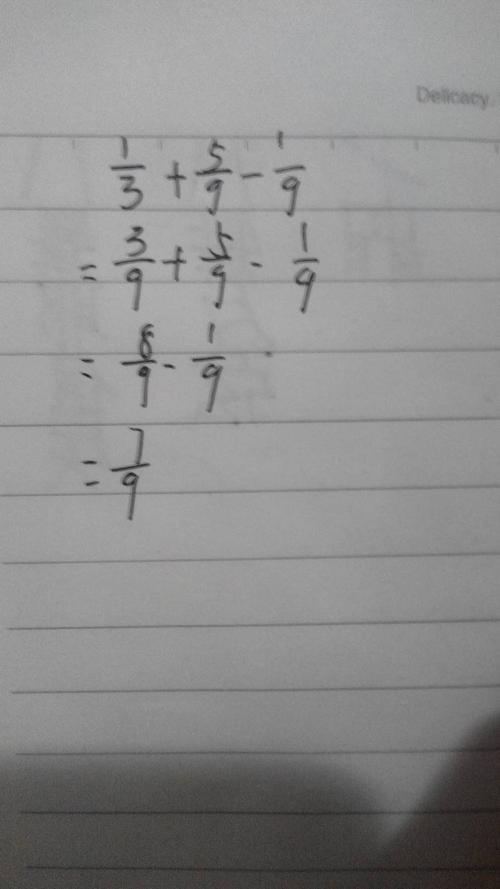 Delicacy
1/3 + 5/9 - 1/9
= 3/9 + 5/9 - 1/9
= 8/9 - 1/9
= 7/9